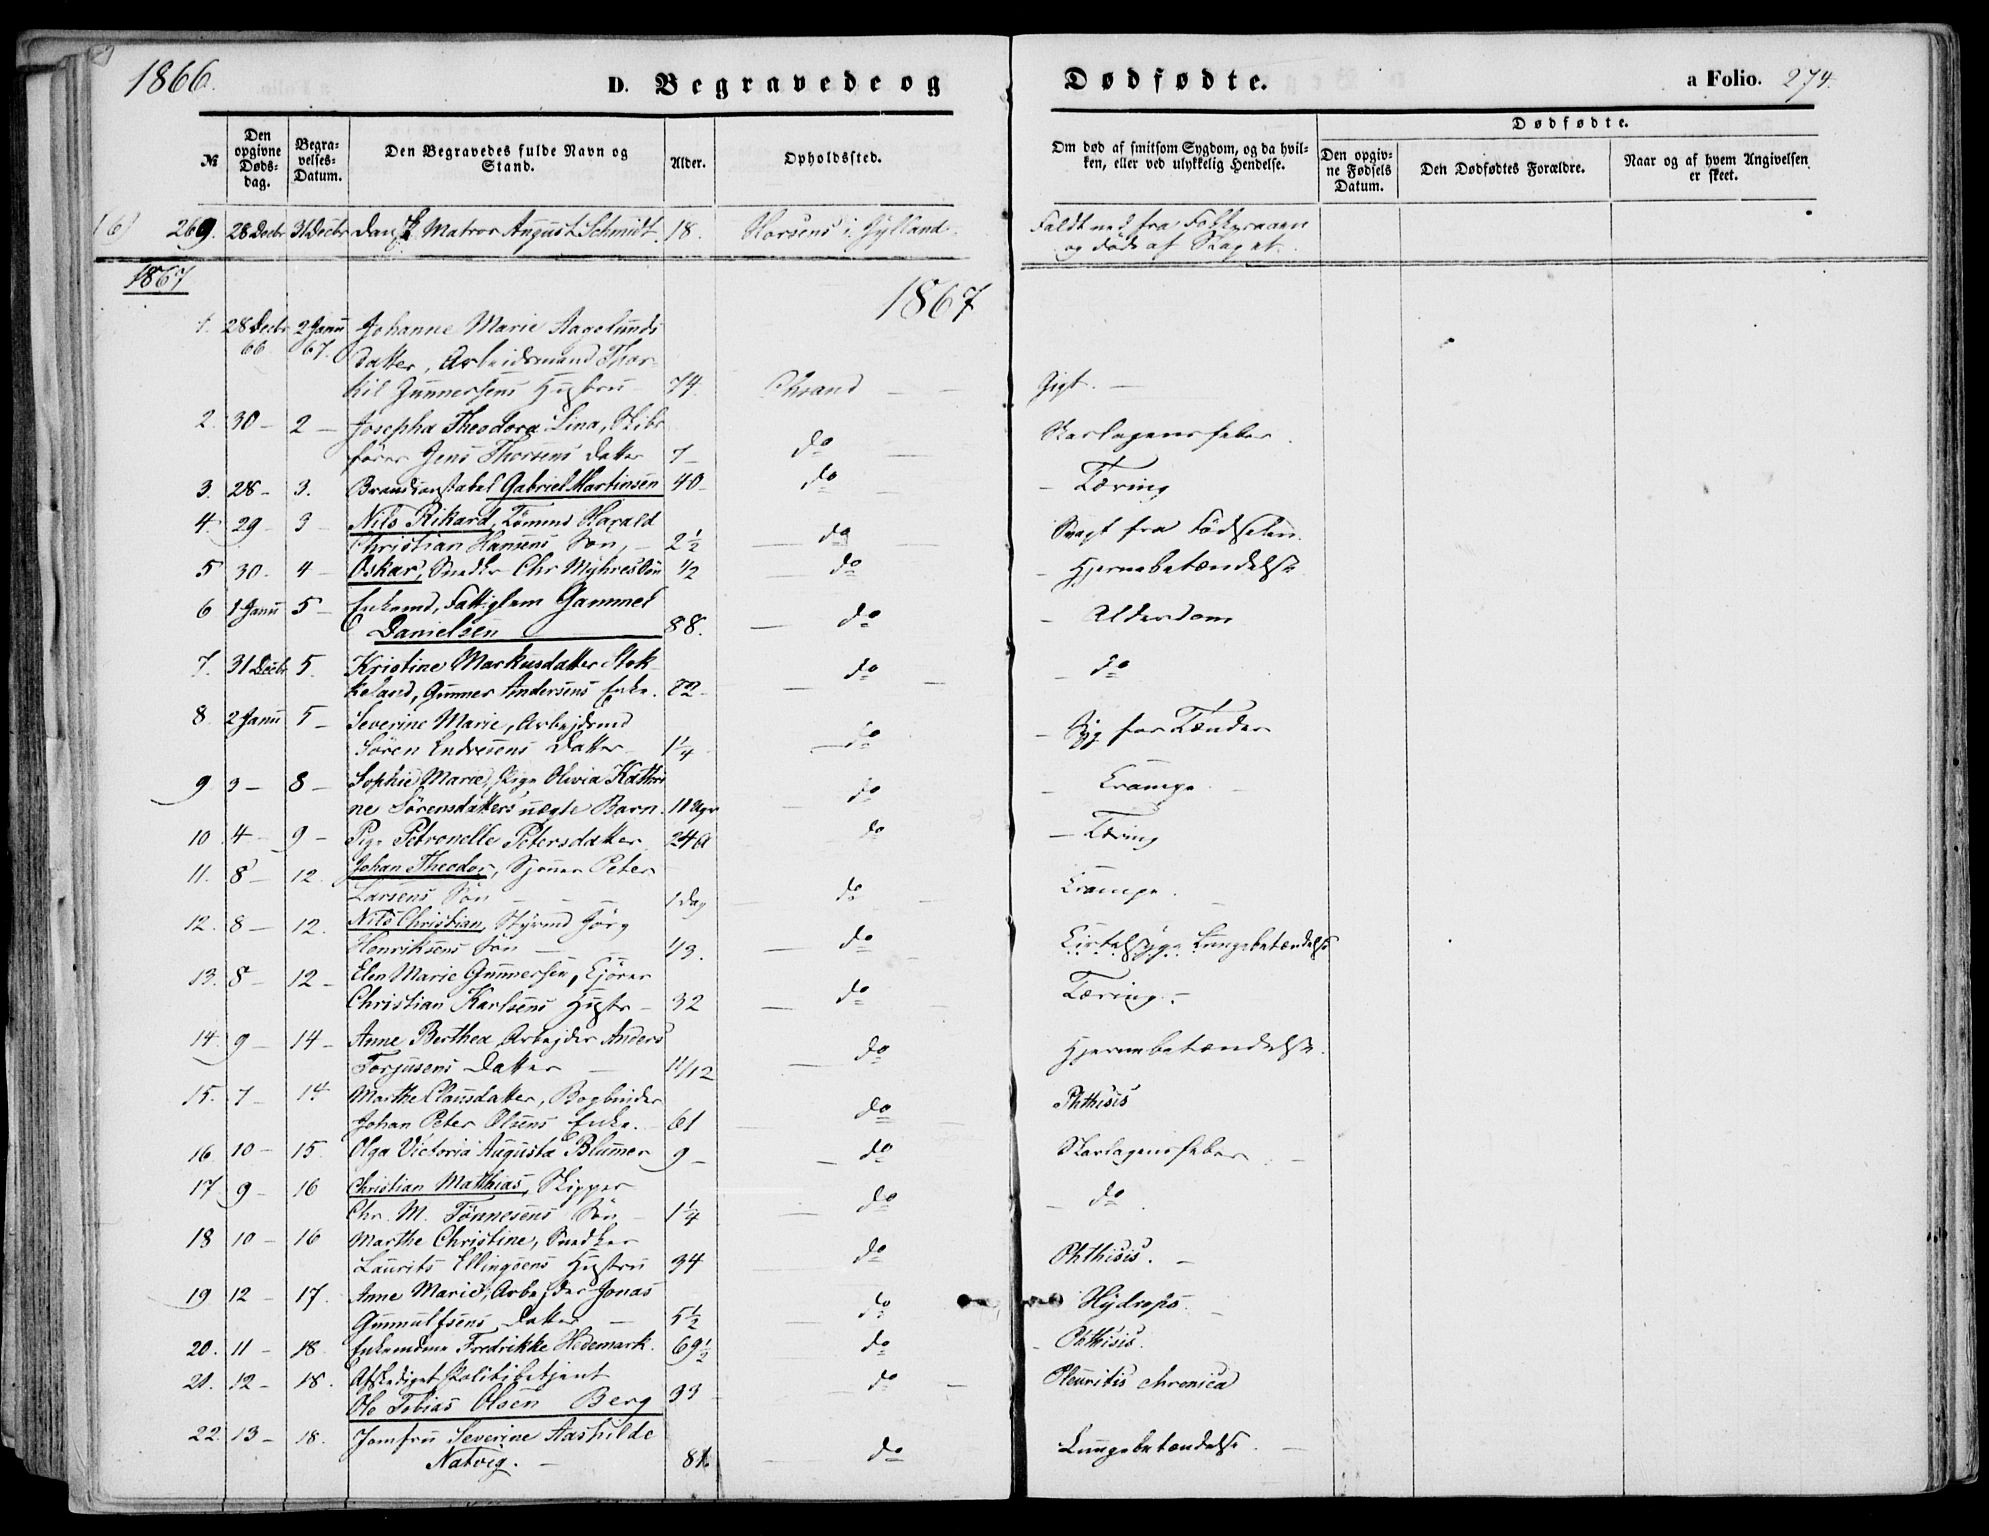 1866.
D. Begravede og Dødfødte.
a Folio. 274.
№
Den opgivne Dødsdag.
Begravelses-Datum.
Den Begravedes fulde Navn og Stand.
Alder.
Opholdssted.
Om død af smitsom Sygdom, og da hvilken, eller ved ulykkelig Hendelse.
Dødfødte.
Den opgivne Fødsels Datum.
Den Dødfødtes Forældre.
Naar og af hvem Angivelsen er skeet.
269. 28 Decbr 31 Decbr Dansk Matros August Schmidt. 18. Horsens i Jylland. Faldt ned fra Fokkeraaen
og døde af Slaget.
1867
1867
1. 28 Decbr 2 Janu Johanne Marie Aagelunds
66. 67. datter, Arbeidsmand Thor-
kil Gunnersens Hustru 74. Chrsand Gigt.
2. 30 2 Josepha Theodora Lina, Skibs
fører Jens Thorsens Datter 7 do Skarlagensfeber.
3. 28 3. Brandconstabel Gabriel Martinsen 40 do Tæring
4. 29 3 Nils Rikard, Tømmd Harald
Christian Hansens Søn, 2½ do Svagt fra Fødselen.
5 30. 4 Oskar, Snedk Chr Myhres Søn ½ do Hjernebetændelse
6 1 Janu 5 Enkemd, Fattiglem Gammel
Danielsen 88. do Alderdom
7. 31 Decbr 5. Kristine Markusdatter Stok-
keland, Gunner Andersens Enke. 82 do do
8. 2 Janu 5 Severine Marie, Arbejdsmd
Søren Endresens Datter 1¼ do Syg for Tænder
9 3 8 Sophie Marie, Pige Olivia Kathri
ne Sørensdatters uægte Barn. 11 Uger do Crampe
10 4 9 Pige Petronelle Petersdatter 24 A do Tæring
11. 8 12. Johan Theodor, Sjømn Peter
Larsens Søn 1 Dag do Crampe.
12. 8 12. Nils Christian, Styrmd Jørg
Henriksens Søn 1/3. do Kirtelsyge Lungebetændelse
13. 8 12 Elen Marie Gunnersen, Kjører
Christian Karlsens Hustr 32 do Tæring.
14. 9 14 Anne Berthea, Arbejder Anders
Torjusens Datter 11/12 do Hjernebetændelse.
15. 7 14 Marthe Clausdatter, Bogbinder
Johan Peter Olsens Enke. 61 do Phthisis
16 10 15. Olga Victoria Augusta Blumer 9 do Skarlagensfeber
17 9 16 Christian Matthias, Skipper
Chr. M. Tønnesens Søn 1¼ do do
18 10 16 Marthe Christine, Snedker
Laurits Ellingsens Hustru 34 do Phthisis.
19 12 17. Anne Marie, Arbejder Jonas
Gunnulfsens Datter 5½ do Hydrops
20. 11 18. Enkemadme Fredrikke Hedemark. 69½ do Phthisis.
21. 12 18. Afskediget Politibetjent
Ole Tobias Olsen Berg 33 do Pleuritis chronica
22. 13 18. Jomfru Severine Aashilde
Natvig. 81. do Lungebetændelse.